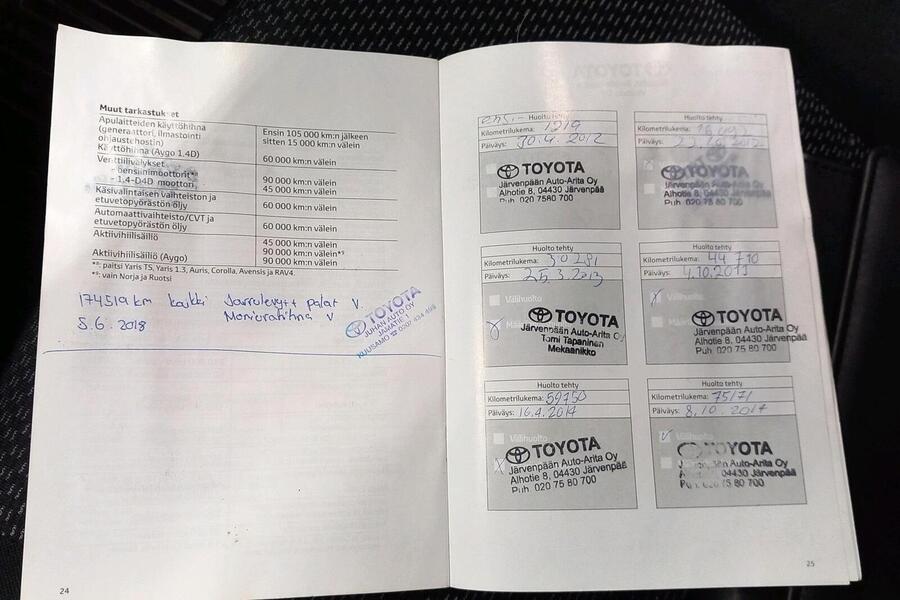 Muut tarkastukset
Apulaitteiden käyttöhihna
(generaattori, ilmastointi
ohjaustehostin)
Ensin 105 000 km:n jälkeen
sitten 15 000 km:n välein
Käyttöhihna (Aygo 1.4D)
60 000 km:n välein
Venttiilivälykset
- bensiinimoottorit*⁸
90 000 km:n välein
- 1.4-D4D moottori
45 000 km:n välein
Käsivalintaisen vaihteiston ja
etuvetopyörästön öljy
60 000 km:n välein
Automaattivaihteisto/CVT ja
etuvetopyörästön öljy
60 000 km:n välein
Aktiivihiilisäiliö
45 000 km:n välein
90 000 km:n välein*⁹
Aktiivihiilisäiliö (Aygo)
90 000 km:n välein
*⁸: paitsi Yaris TS, Yaris 1.3, Auris, Corolla, Avensis ja RAV4.
*⁹: vain Norja ja Ruotsi
174519 km kaikki Jarrulevyt+ palat V.
5.6.2018 Moniurahihna V
TOYOTA
JUHAN AUTO OY
KUUSAMO ☎ 0207 434 499
24
Huolto tehty
Kilometrilukema: 1219
Päiväys: 30.4.2012
TOYOTA
Järvenpään Auto-Arita Oy
Alhotie 8, 04430 Järvenpää
Puh. 020 7580 700
Huolto tehty
Kilometrilukema:
Päiväys:
TOYOTA
Järvenpään Auto-Arita Oy
Alhotie 8, 04430 Järvenpää
Puh. 020 7580 700
Huolto tehty
Kilometrilukema: 30281
Päiväys: 25.3.2013
Välihuolto
TOYOTA
Järvenpään Auto-Arita Oy
Tomi Tapaninen
Mekaanikko
Huolto tehty
Kilometrilukema: 44 710
Päiväys: 4.10.2013
Välihuolto
TOYOTA
Järvenpään Auto-Arita Oy
Alhotie 8, 04430 Järvenpää
Puh. 020 75 80 700
Huolto tehty
Kilometrilukema: 59750
Päiväys: 16.4.2014
Välihuolto
TOYOTA
Järvenpään Auto-Arita Oy
Alhotie 8, 04430 Järvenpää
Puh. 020 75 80 700
Huolto tehty
Kilometrilukema: 75171
Päiväys: 8.10.2014
Välihuolto
TOYOTA
Auto-Arita Oy
8, 04430 Järvenpää
75 80 700
25